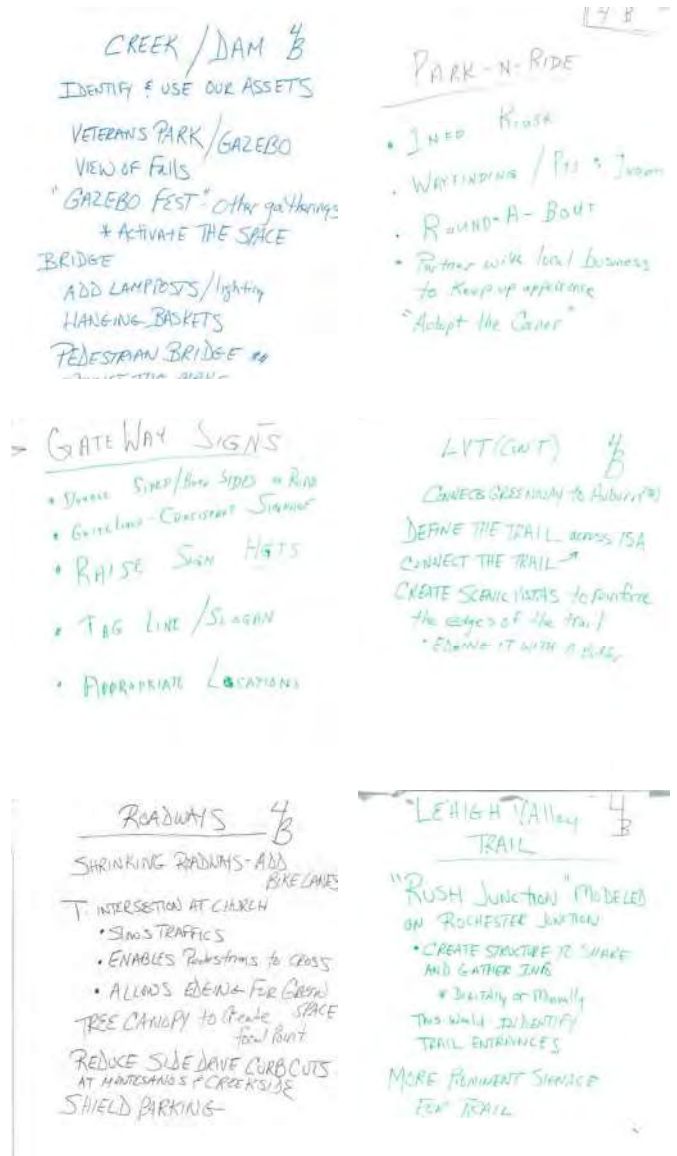 CREEK / DAM 4B
IDENTIFY & USE OUR ASSETS
VETERANS PARK / GAZEBO
VIEW OF Falls
"GAZEBO FEST" other gatherings
* ACTIVATE THE SPACE
BRIDGE
ADD LAMPPOSTS / lighting
HANGING BASKETS
PEDESTRIAN BRIDGE
4 B
PARK-N-RIDE
• INFO Kiosk
• WAYFINDING / Pts
• ROUND-A-BOUT
• Partner with local business
to Keep up appearance
"Adopt the Corner"
GATEWAY SIGNS
• Double SIDED / Both SIDES of ROAD
• Guidelines - CONSISTENT SIGNAGE
• RAISE SIGN HGTS
• TAG LINE / SLOGAN
• APPROPRIATE LOCATIONS
LVT (CONT) 4B
CONNECTS GREENWAY to Auburn
DEFINE THE TRAIL across 15A
CONNECT THE TRAIL
CREATE SCENIC VISTAS to reinforce
the edges of the trail
• EDGING IT WITH A
ROADWAYS 4B
SHRINKING ROADWAYS - ADD
BIKE LANES
T. INTERSECTION AT CHURCH
• Slows TRAFFICS
• ENABLES Pedestrians to CROSS
• ALLOWS EDGING FOR GREEN
SPACE
TREE CANOPY to Create
focal Point
REDUCE SIDE DRIVE CURB CUTS
AT MONTESANOS & CREEKSIDE
SHIELD PARKING
LEHIGH VAlley 4B
TRAIL
"RUSH JUNCTION" MODELED
ON ROCHESTER JUNCTION
• CREATE STRUCTURE TO SHARE
AND GATHER INFO
* Digitally or Manually
This would INDENTIFY
TRAIL ENTRANCES
MORE PROMINENT SIGNAGE
FOR TRAIL